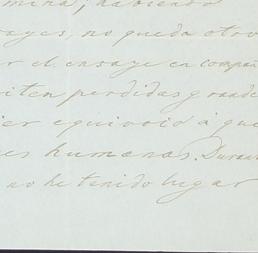 mina, habiendo
ayes, no queda otro
r el ensaye en compañ
iten perdidas grande
ier equivoco á que
es humanas. Durant
no he tenido lugar